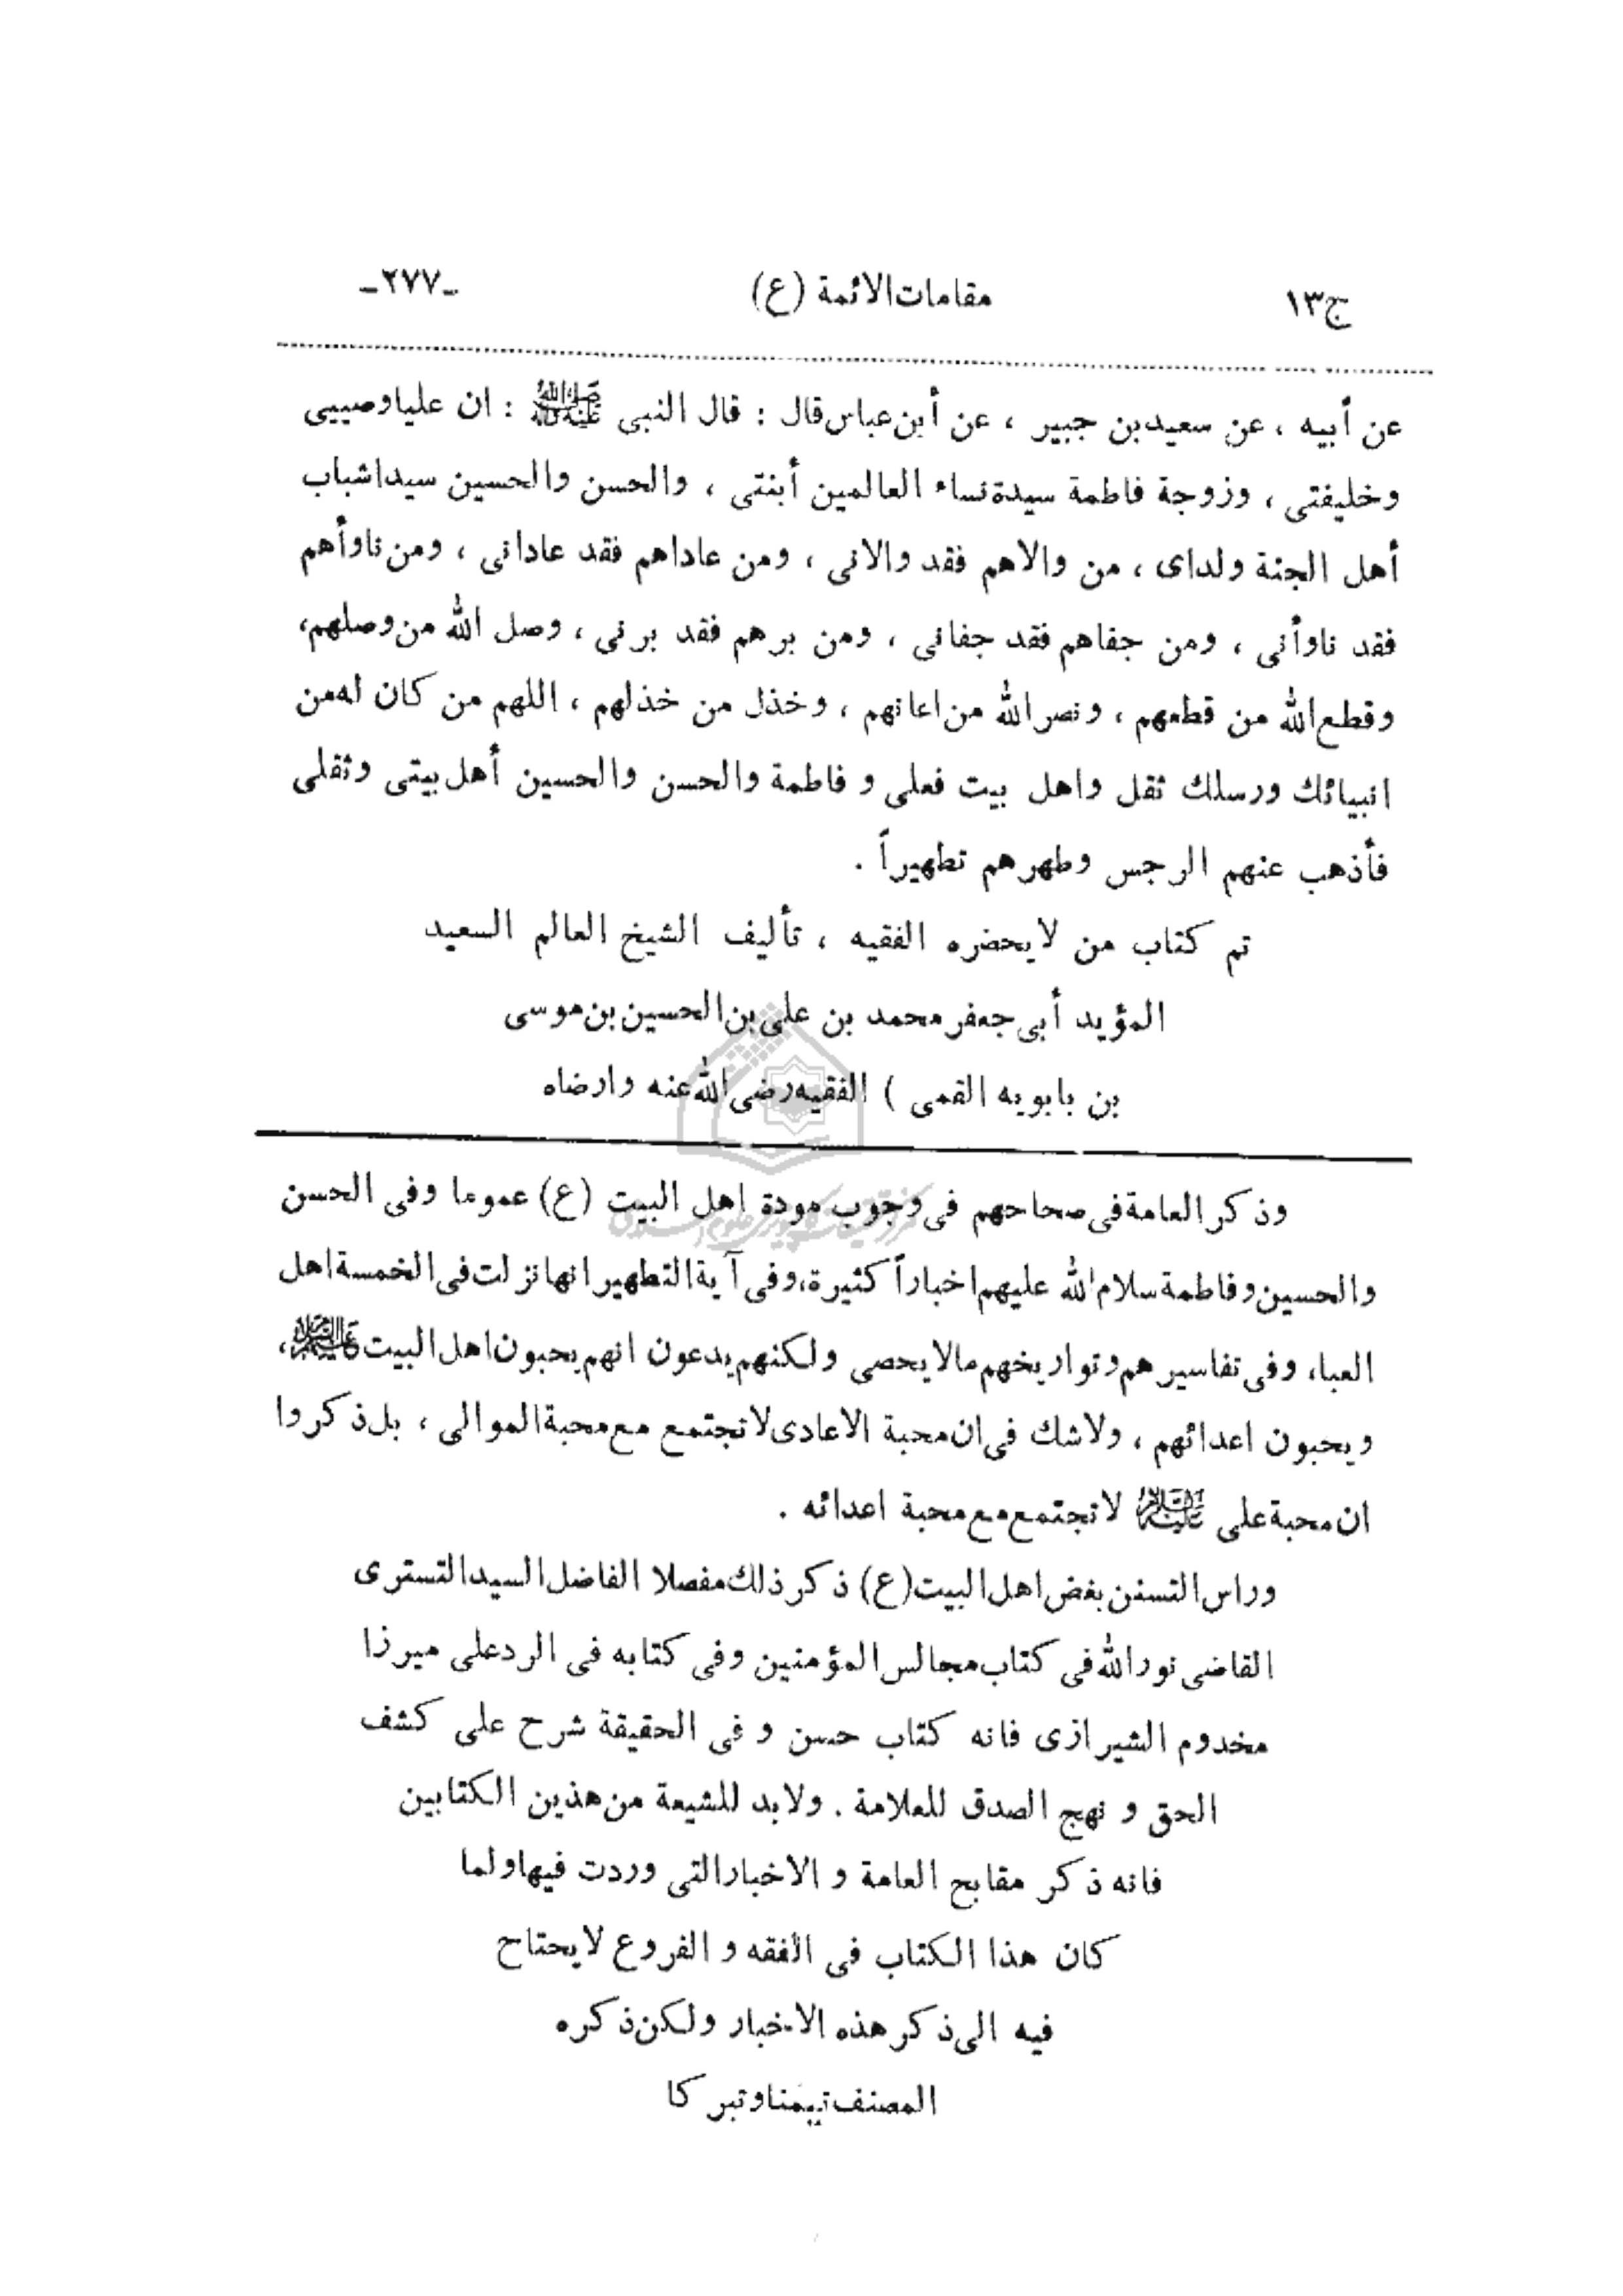 ج١٣ مقامات الائمة (ع) -٢٧٧-
عن أبيه ، عن سعيد بن جبير ، عن أبن عباس قال : قال النبى ﷺ : ان عليا وصيى
وخليفتى ، وزوجة فاطمة سيدة نساء العالمين أبنتى ، والحسن والحسين سيدا شباب
أهل الجنة ولداى ، من والاهم فقد والانى ، ومن عاداهم فقد عادانى ، ومن ناوأهم
فقد ناوأنى ، ومن جفاهم فقد جفانى ، ومن برهم فقد برنى ، وصل الله من وصلهم،
وقطع الله من قطعهم ، ونصر الله من اعانهم ، وخذل من خذلهم ، اللهم من كان له من
انبيائك ورسلك ثقل واهل بيت فعلى و فاطمة والحسن والحسين أهل بيتى وثقلى
فأذهب عنهم الرجس وطهرهم تطهيراً .
تم كتاب من لايحضره الفقيه ، تأليف الشيخ العالم السعيد
المؤيد أبى جعفر محمد بن على بن الحسين بن موسى
بن بابويه القمى ) الفقيه رضى الله عنه وارضاه
وذكر العامة فى صحاحهم فى وجوب مودة اهل البيت (ع) عموما وفى الحسن
والحسين وفاطمة سلام الله عليهم اخباراً كثيرة، وفى آية التطهير انها نزلت فى الخمسة اهل
العبا، وفى تفاسيرهم وتواريخهم مالايحصى ولكنهم يدعون انهم يحبون اهل البيت عليهم السلام،
ويحبون اعدائهم ، ولاشك فى ان محبة الاعادى لاتجتمع مع محبة الموالى ، بل ذكروا
ان محبة على عليه السلام لاتجتمع مع محبة اعدائه .
وراس التسنن بغض اهل البيت (ع) ذكر ذلك مفصلا الفاضل السيد التسترى
القاضى نور الله فى كتاب مجالس المؤمنين وفى كتابه فى الرد على ميرزا
مخدوم الشيرازى فانه كتاب حسن و فى الحقيقة شرح على كشف
الحق و نهج الصدق للعلامة . ولابد للشيعة من هذين الكتابين
فانه ذكر مقابح العامة و الاخبار التى وردت فيها ولما
كان هذا الكتاب فى الفقه و الفروع لايحتاح
فيه الى ذكر هذه الاخبار ولكن ذكره
المصنف تيمنا وتبركا